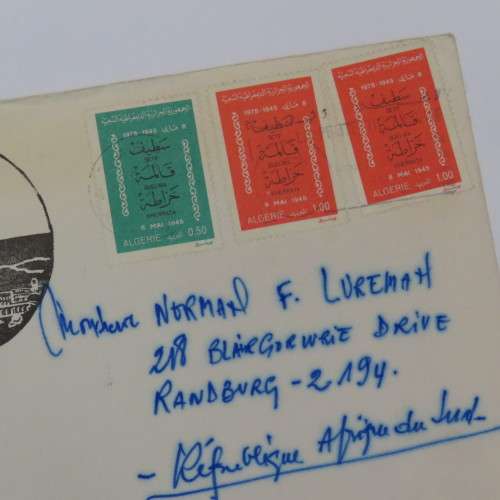 الجمهورية الجزائرية الديمقراطية الشعبية
1975 - 1945 ماي 8
سطيف
SETIF
قالمة
GUELMA
خراطة
KHERRATA
8 MAI 1945
ALGERIE البريد 0.50
الجمهورية الجزائرية الديمقراطية الشعبية
1975 - 1945 ماي 8
سطيف
SETIF
قالمة
GUELMA
خراطة
KHERRATA
8 MAI 1945
ALGERIE البريد 1.00
الجمهورية الجزائرية الديمقراطية الشعبية
1975 - 1945 ماي 8
سطيف
SETIF
قالمة
GUELMA
خراطة
KHERRATA
8 MAI 1945
ALGERIE البريد 1.00
Monsieur NORMAN F. LUREMAN
218 BLAIRGOWRIE DRIVE
RANDBURG - 2194.
- République Afrique du Sud -